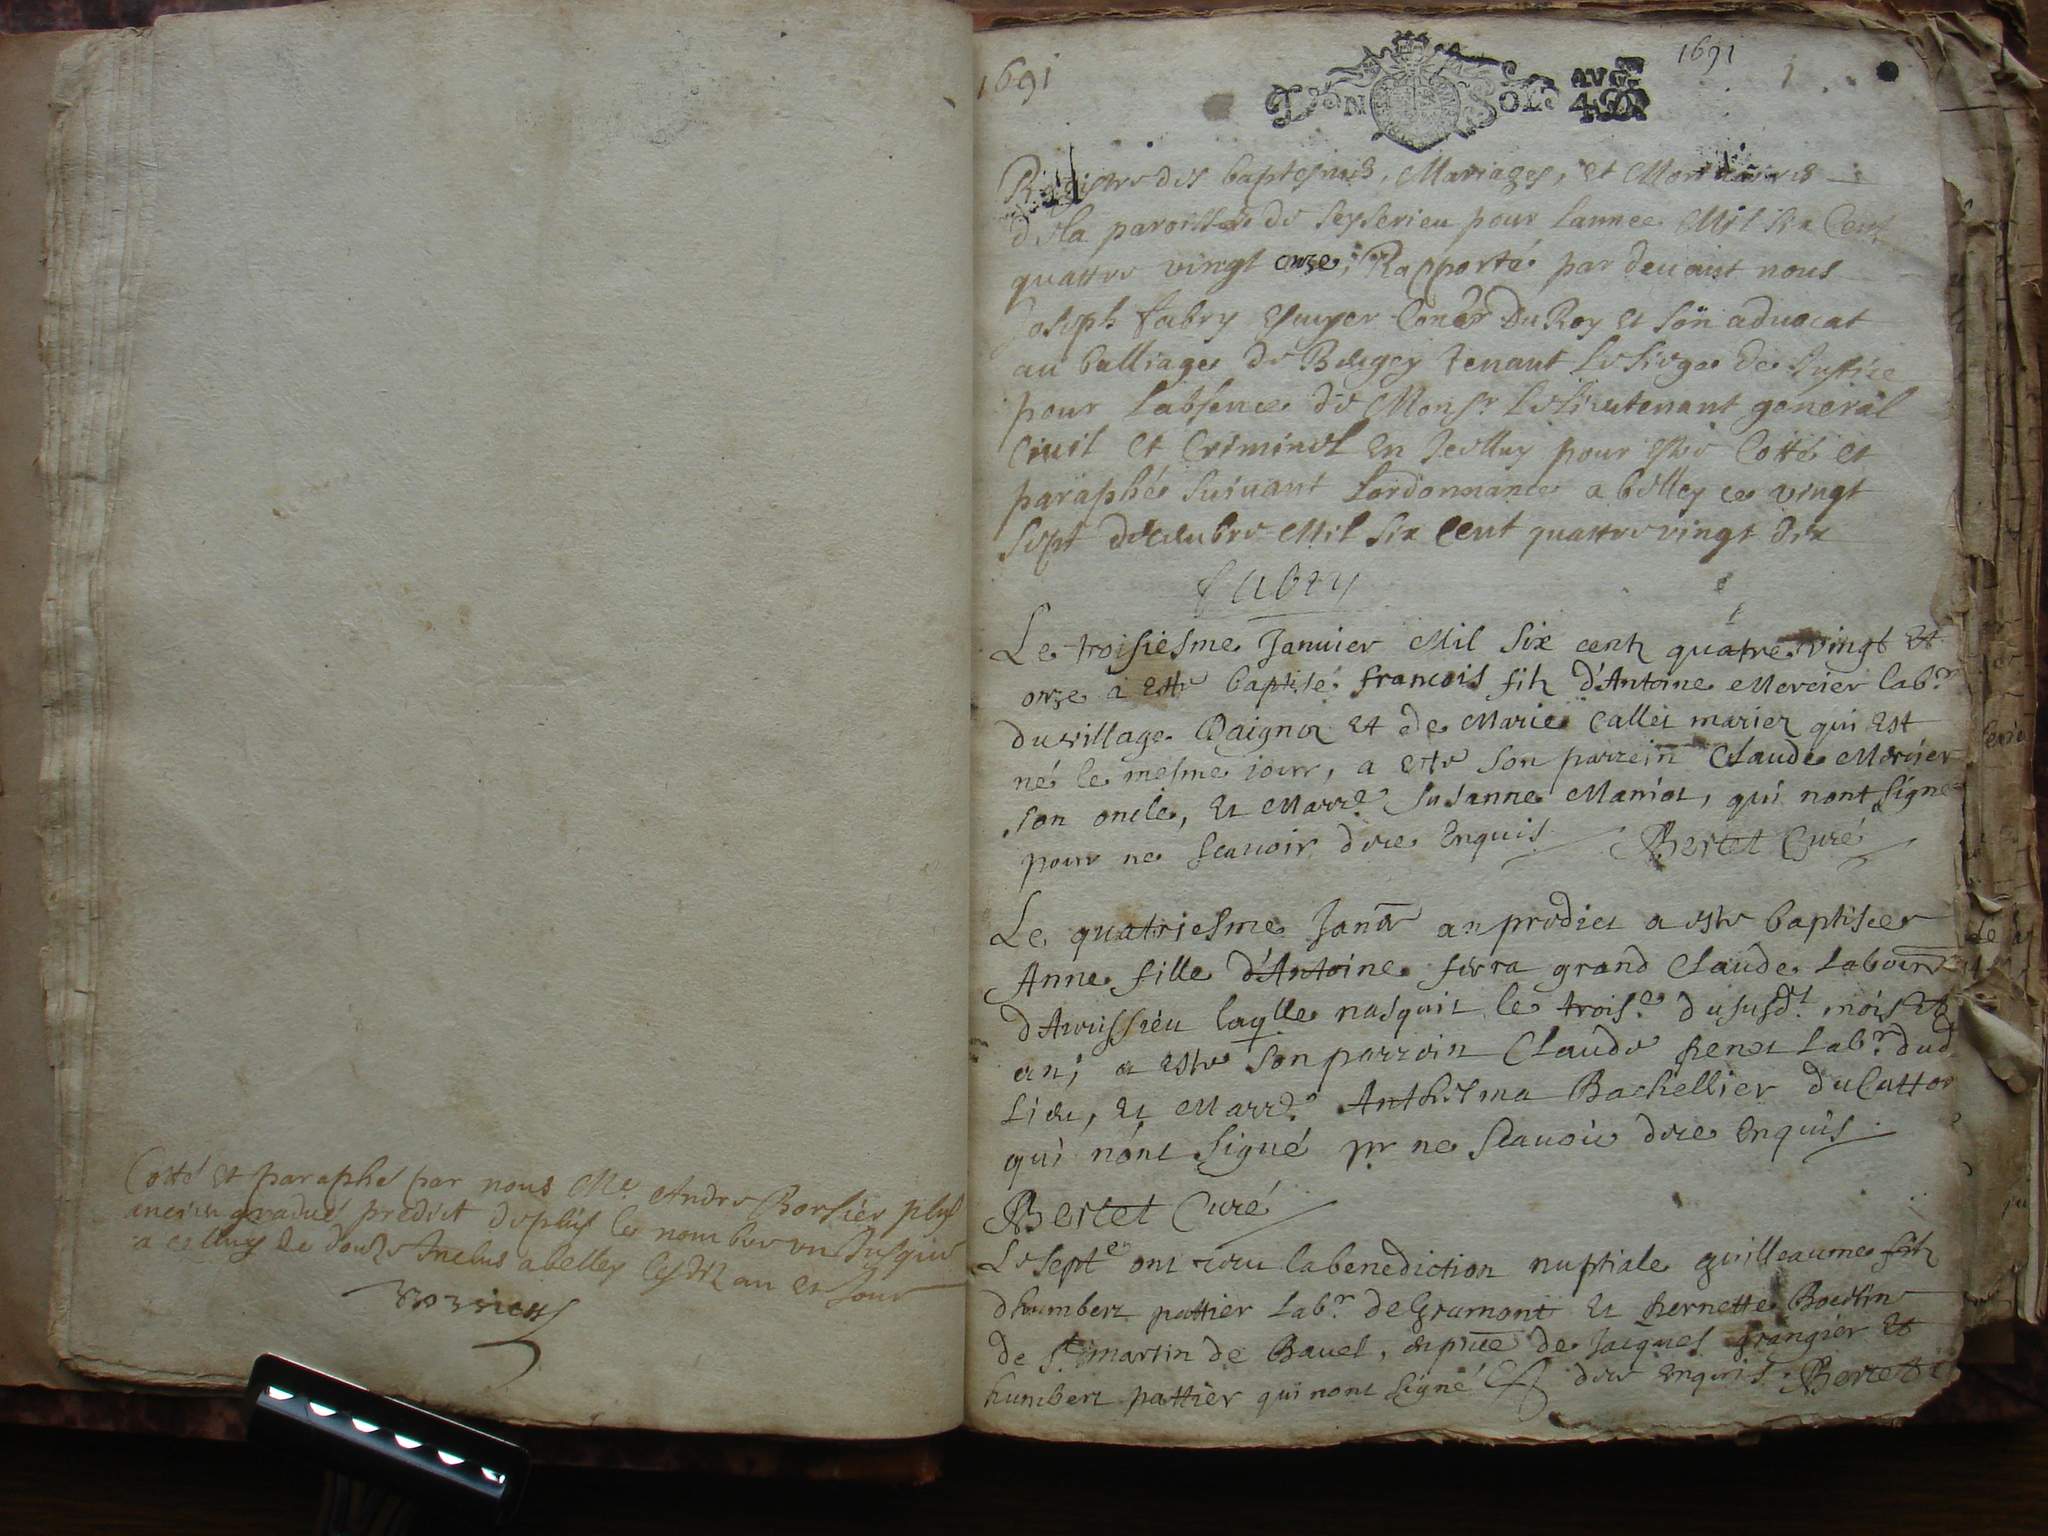 Cotté et paraphé par nous Me Andre Borsier plus
ancien gradué predict depuis le nombre un Jusque
a celluy de douze Inclus a belley lesdits an et Jour
1691
1691
1
AVG
Registre des baptesmes, Mariages, et Mortuaires
de la paroisse de seyserieu pour lannee Mil six Cent
quattre vingt onze, Rapporté par deuant nous
Joseph fabry Escuyer Coner Du Roy et son aduocat
au balliage de Beugey tenant le siege de Justice
pour labsence de Monsr le lieutenant general
Ciuil et Criminel en Icelluy pour estre Cotté et
paraphé suiuant lordonnance a belley ce vingt
sept decembre Mil six Cent quattre vingt dix
fabry
Le troisiesme Januier Mil six cents quatre vingt et
onze a esté baptisé francois fils d'Antoine Mercier labr
du village Daignoz et de Marie Callet mariez qui est
né le mesme iour, a esté son parrein Claude Mercier
son oncle, et Marre Susanne Maniot, qui nont signé
pour ne scauoir de ce Enquis Bertet Curé
Le quatriesme Janr an predict a esté baptisee
Anne fille d'Antoine ferra grand Claude Labour
dAvrissieu laqlle nasquit le troise du susdt mois et
an; a esté son parrein Claude Labr dud
lieu, et Marre Anthelma Bachellier du Catton
qui nont signé pr ne scauoir de ce enquis.
Bertet Curé
Le septe ont receu la benediction nuptiale guilleaume fils
dhumbert pattier Labr de Gramont et pernette Boestin
de st martin de Bauel, en pnce de Jacques grangier et
humbert pattier qui nont signé de ce enquis. Bertet